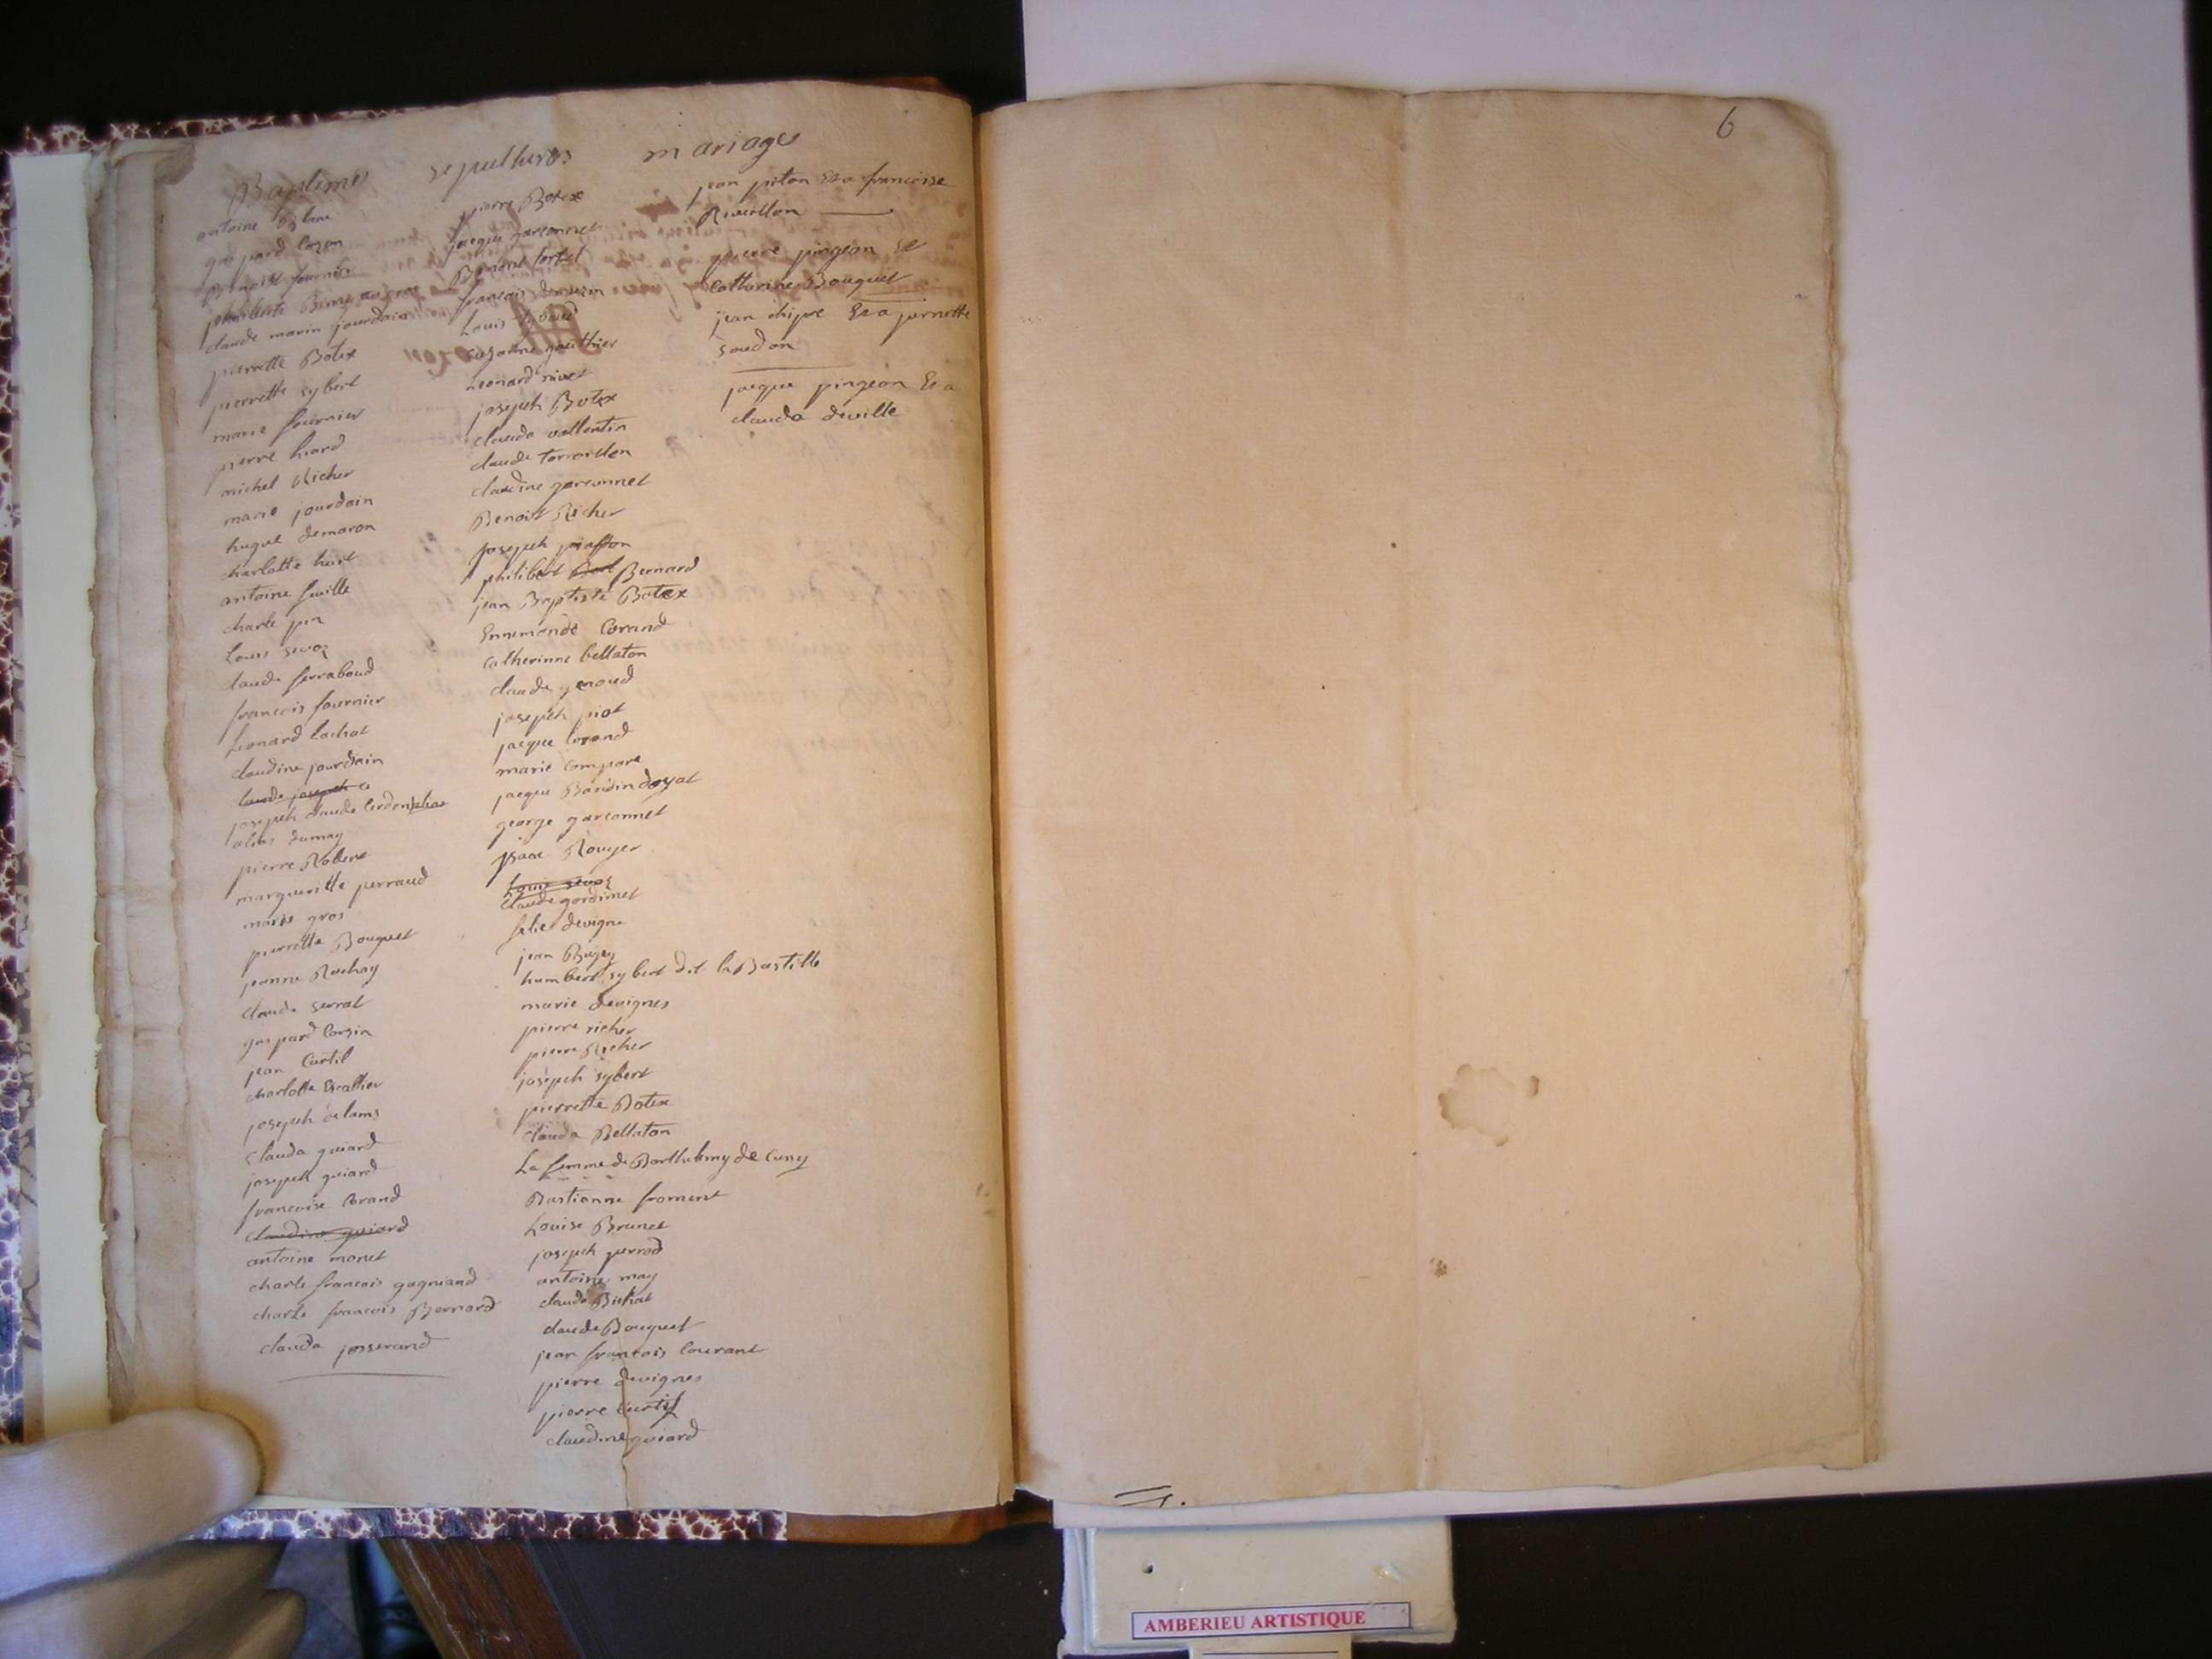 Baptemes
antoine
gaspard Cozon
Benoist fournier
philiberte
claude marin jourdain
pierrette Botex
pierrette sybert
marie fournier
pierre hiard
michel Richer
marie jourdain
hugue demaron
charlotte huit
antoine feuille
charle pin
Louis sevoz
claude ferraboud
francois fournier
Leonard Lachat
claudine jourdain
claude joseph co
joseph claude Cerdon
alias dumay
pierre Robert
margueritte perraud
marie gros
pierrette Bouquet
jeanne Rochay
claude serrat
gaspard Corsin
jean Curtil
charlotte Escallier
joseph delams
Clauda guiard
joseph guiard
francoise Corand
claudine guiard
antoine monet
charle francois gagniand
charle francois Bernard
clauda josserand
sepultures
pierre Botex
jacque garconnet
Benoist
francois
Louis
suzanne gauthier
Leonard nivet
joseph Botex
clauda vallentin
claude torroillon
claudine garconnet
Benoist Richer
joseph
philibert Bernard
jean Baptiste Botex
Ennemonde Corand
Catherinne bellaton
claude genoud
joseph piot
jacque Corand
marie Compare
jacque Baudin doyat
george garconnet
ysaac Rouyer
Louis sevoz
claude gordinet
felie devigne
jean Bugey
humbert sybert dit la Bastille
marie devignes
pierre richer
pierre Richer
joseph sybert
pierrette Botex
clauda Bellaton
La femme de Barthelemy de Cuny
Bastianne froment
Louise Brunet
joseph perrod
antoine may
claude Bichat
claude Bouquet
jean francois Courant
pierre devignes
pierre Curtil
claudine guiard
mariages
jean piton Et a francoise
Reveillon
pierre pingeon Et
Catherine Bouquet
jean chipre Et a pernette
soudan
jacque pingeon Et a
clauda deville
6
AMBERIEU ARTISTIQUE